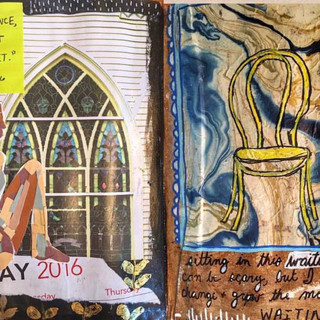 NCE,
T
ET."
AY 2016
day
Thursday
sitting in this waiting
can be scary, but I
change & grow the mo
WAITIN